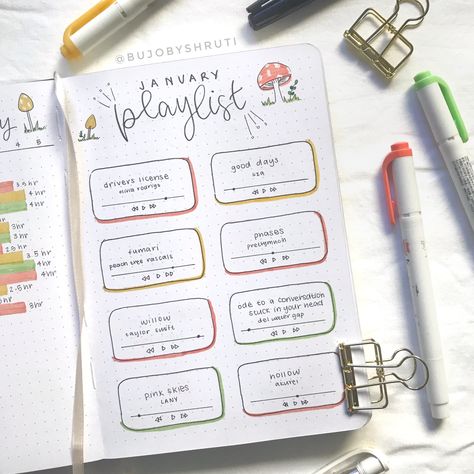 @BUJOBYSHRUTI
JANUARY
playlist
drivers license
olivia rodrigo
good days
sza
fumari
peach tree rascals
phases
prettymuch
willow
taylor swift
ode to a conversation
stuck in your head
del water gap
pink skies
LANY
hollow
y
4 5
3.5 hr
4hr
4hr
3hr
3.5hr
4hr
8hr